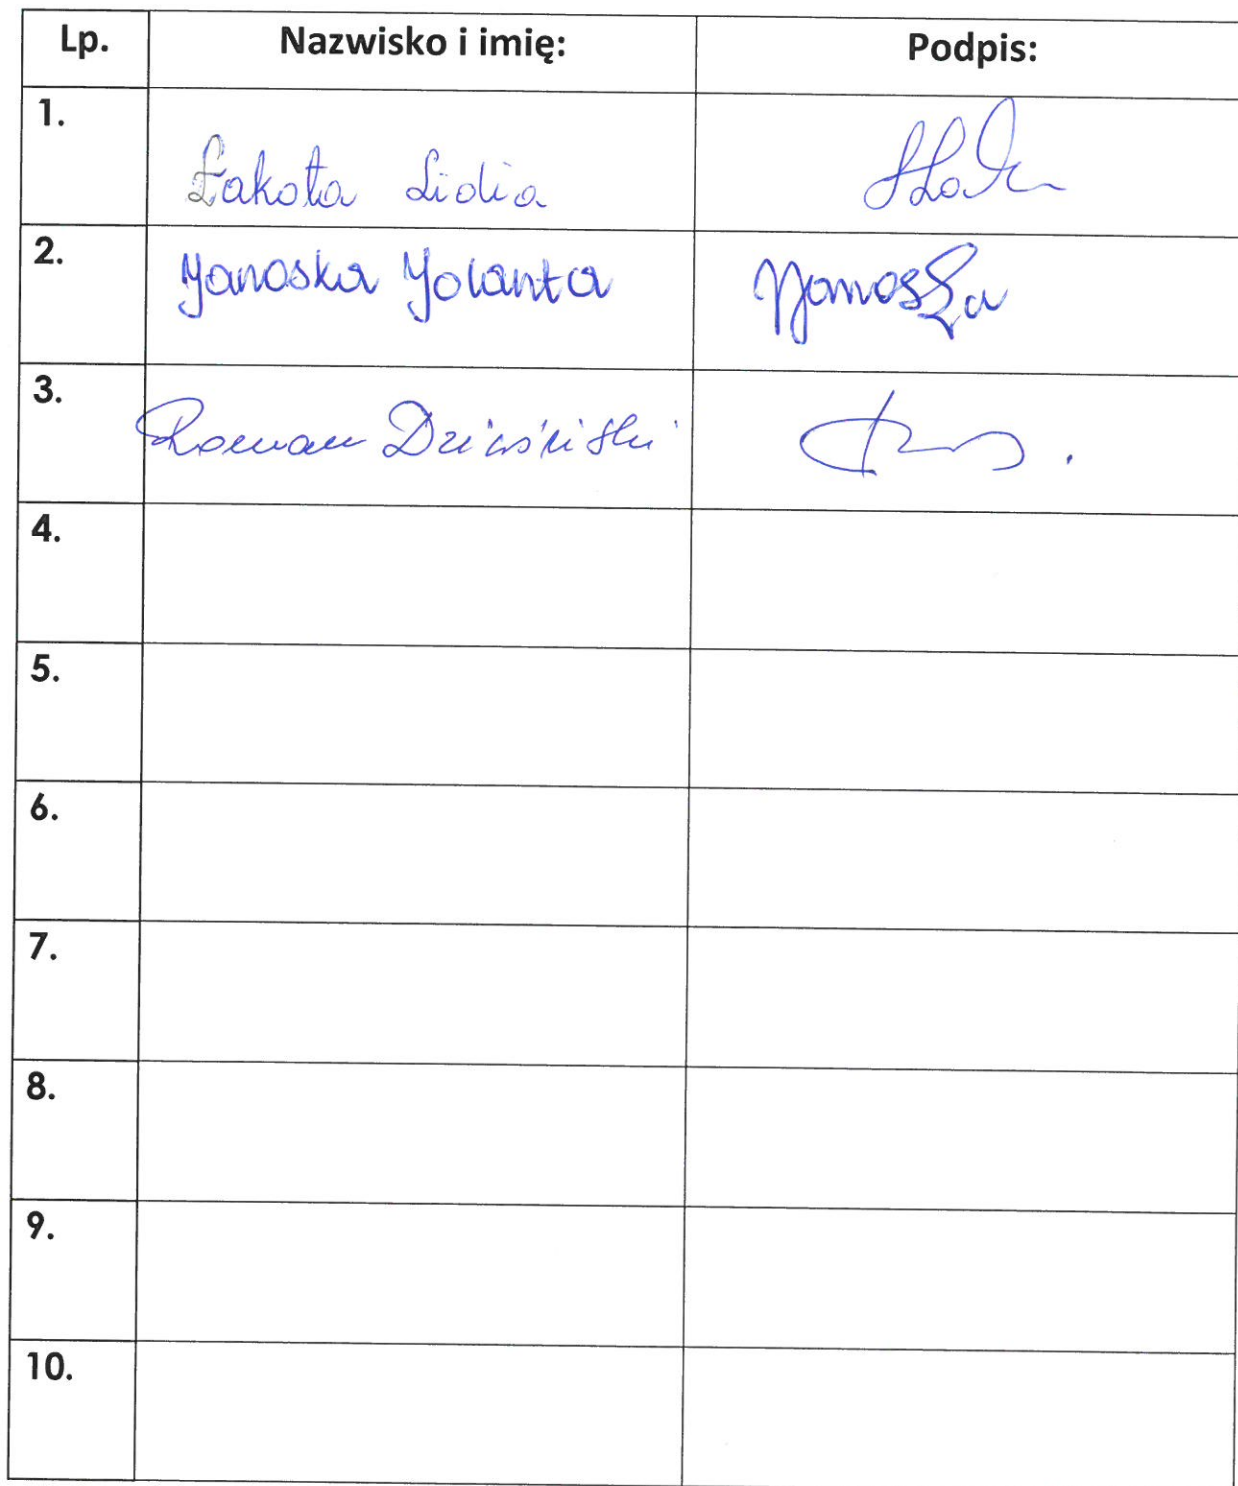 Lp. Nazwisko i imię: Podpis:
1. Łakota Lidia
2. Janoska Jolanta Janoska
3. Roman
4.
5.
6.
7.
8.
9.
10.